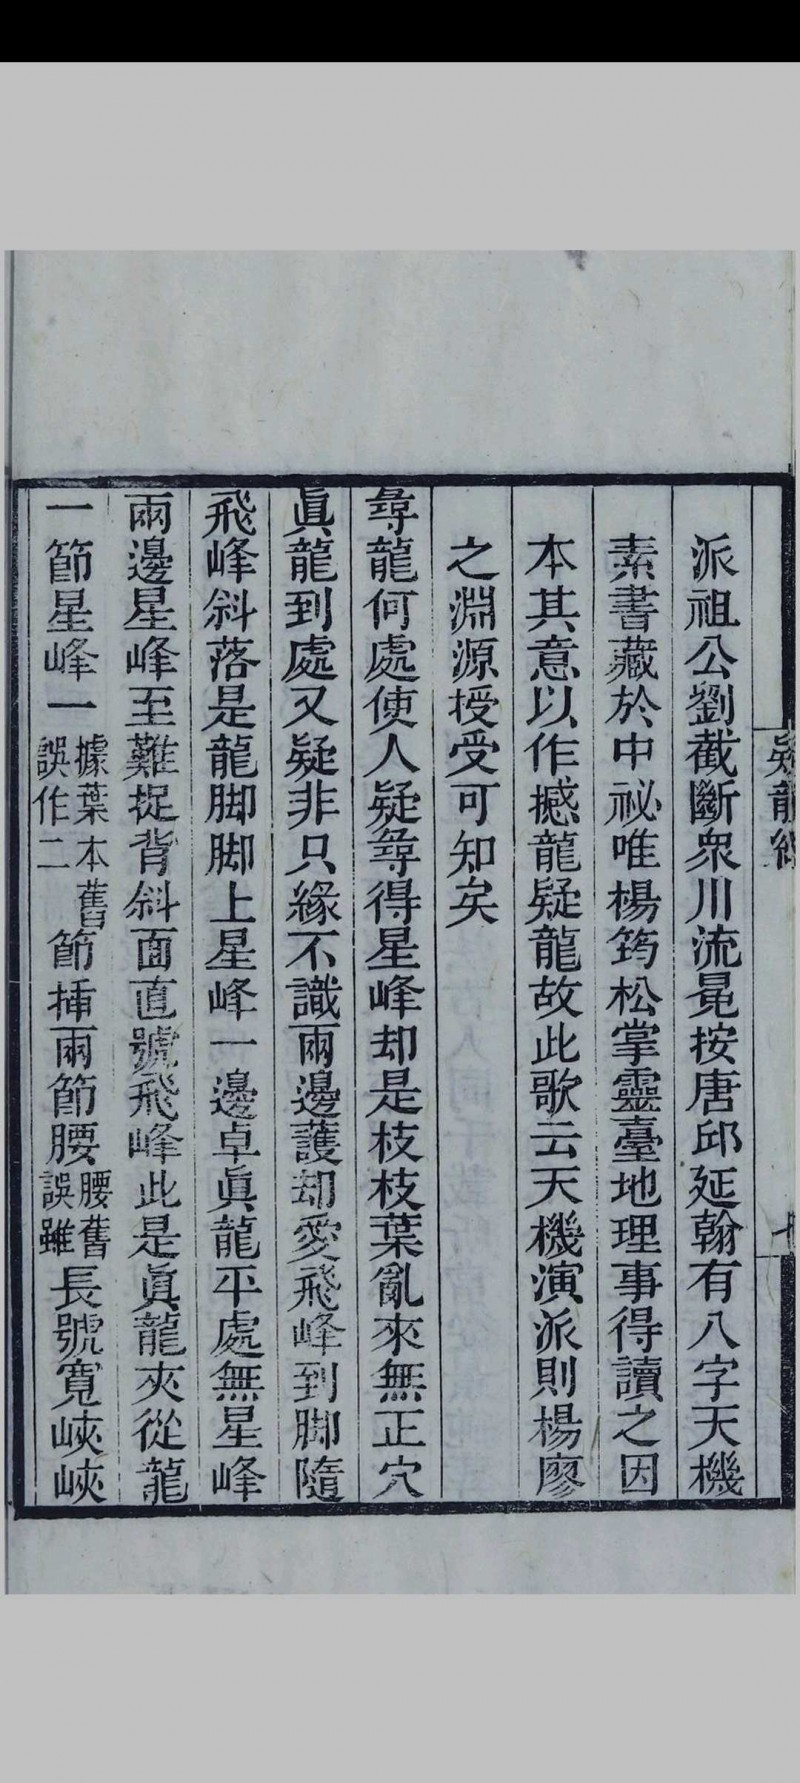 疑龍經
派祖公劉截斷衆川流冕按唐邱延翰有八字天機
素書藏於中祕唯楊筠松掌靈臺地理事得讀之因
本其意以作撼龍疑龍故此歌云天機演派則楊廖
之淵源授受可知矣
尋龍何處使人疑尋得星峰却是枝枝葉亂來無正穴
眞龍到處又疑非只緣不識兩邊護却愛飛峰到脚隨
飛峰斜落是龍脚脚上星峰一邊卓眞龍平處無星峰
兩邊星峰至難捉背斜面直號飛峰此是眞龍夾從龍
一節星峰一據葉本舊誤作二節插兩節腰腰舊誤雖長號寬峽峽